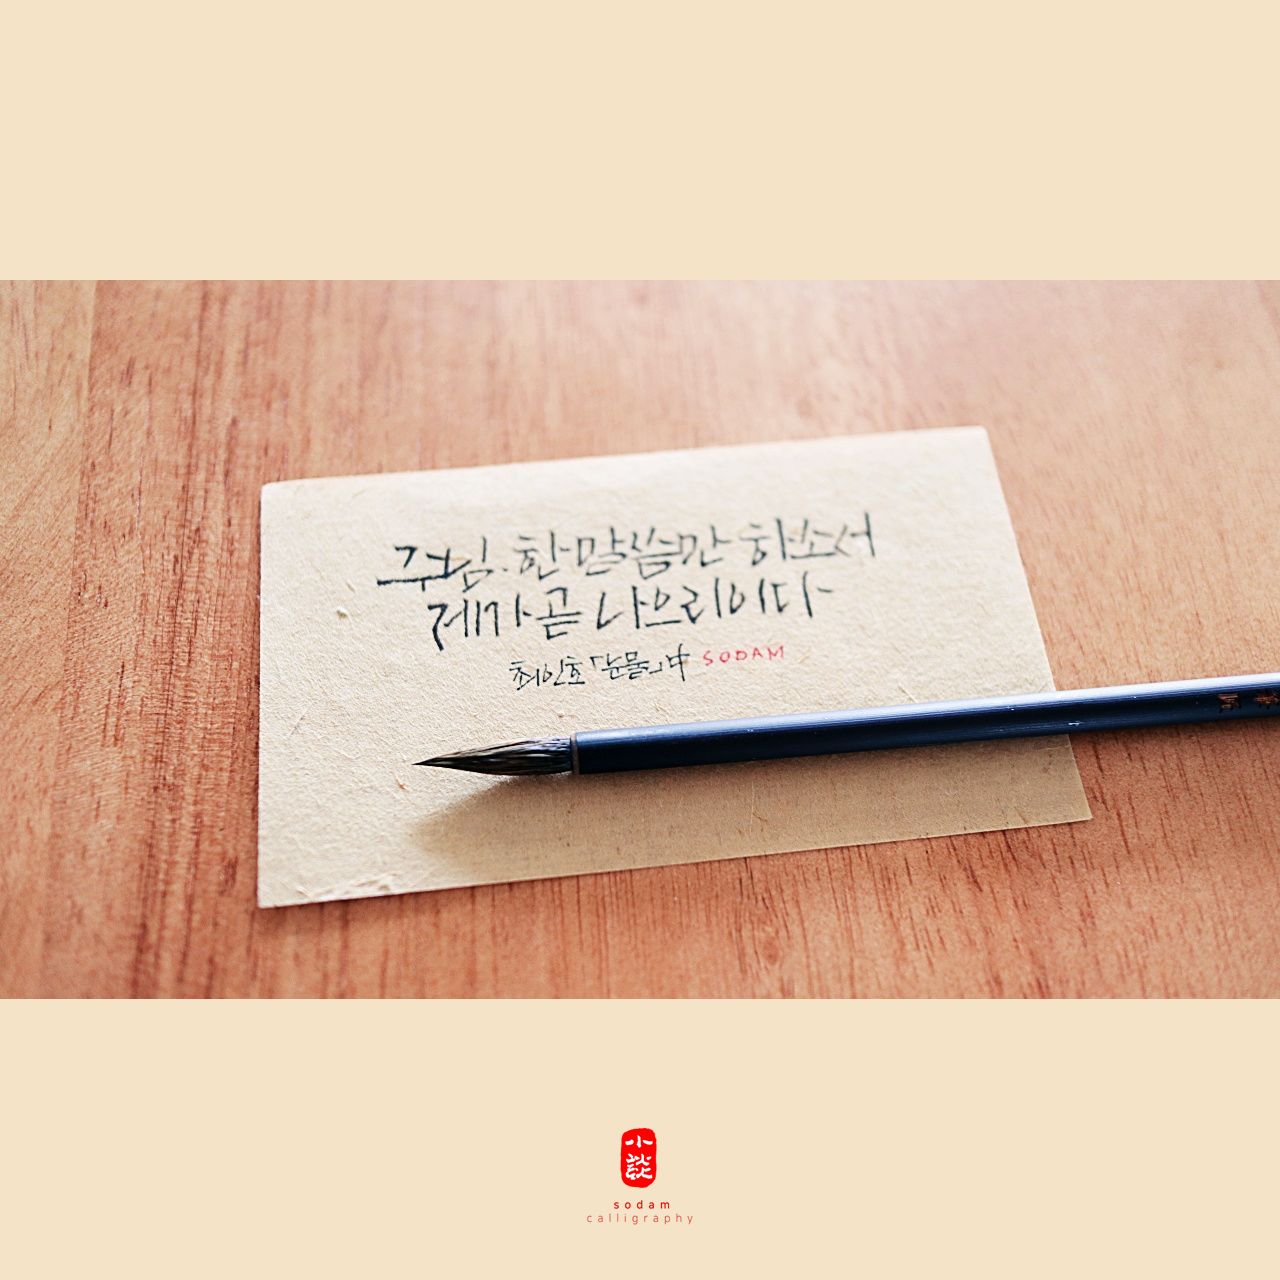 주님. 한 말씀만 하소서
제가 곧 나으리이다
최인호 「눈물」 中 SODAM
小談
sodam
calligraphy